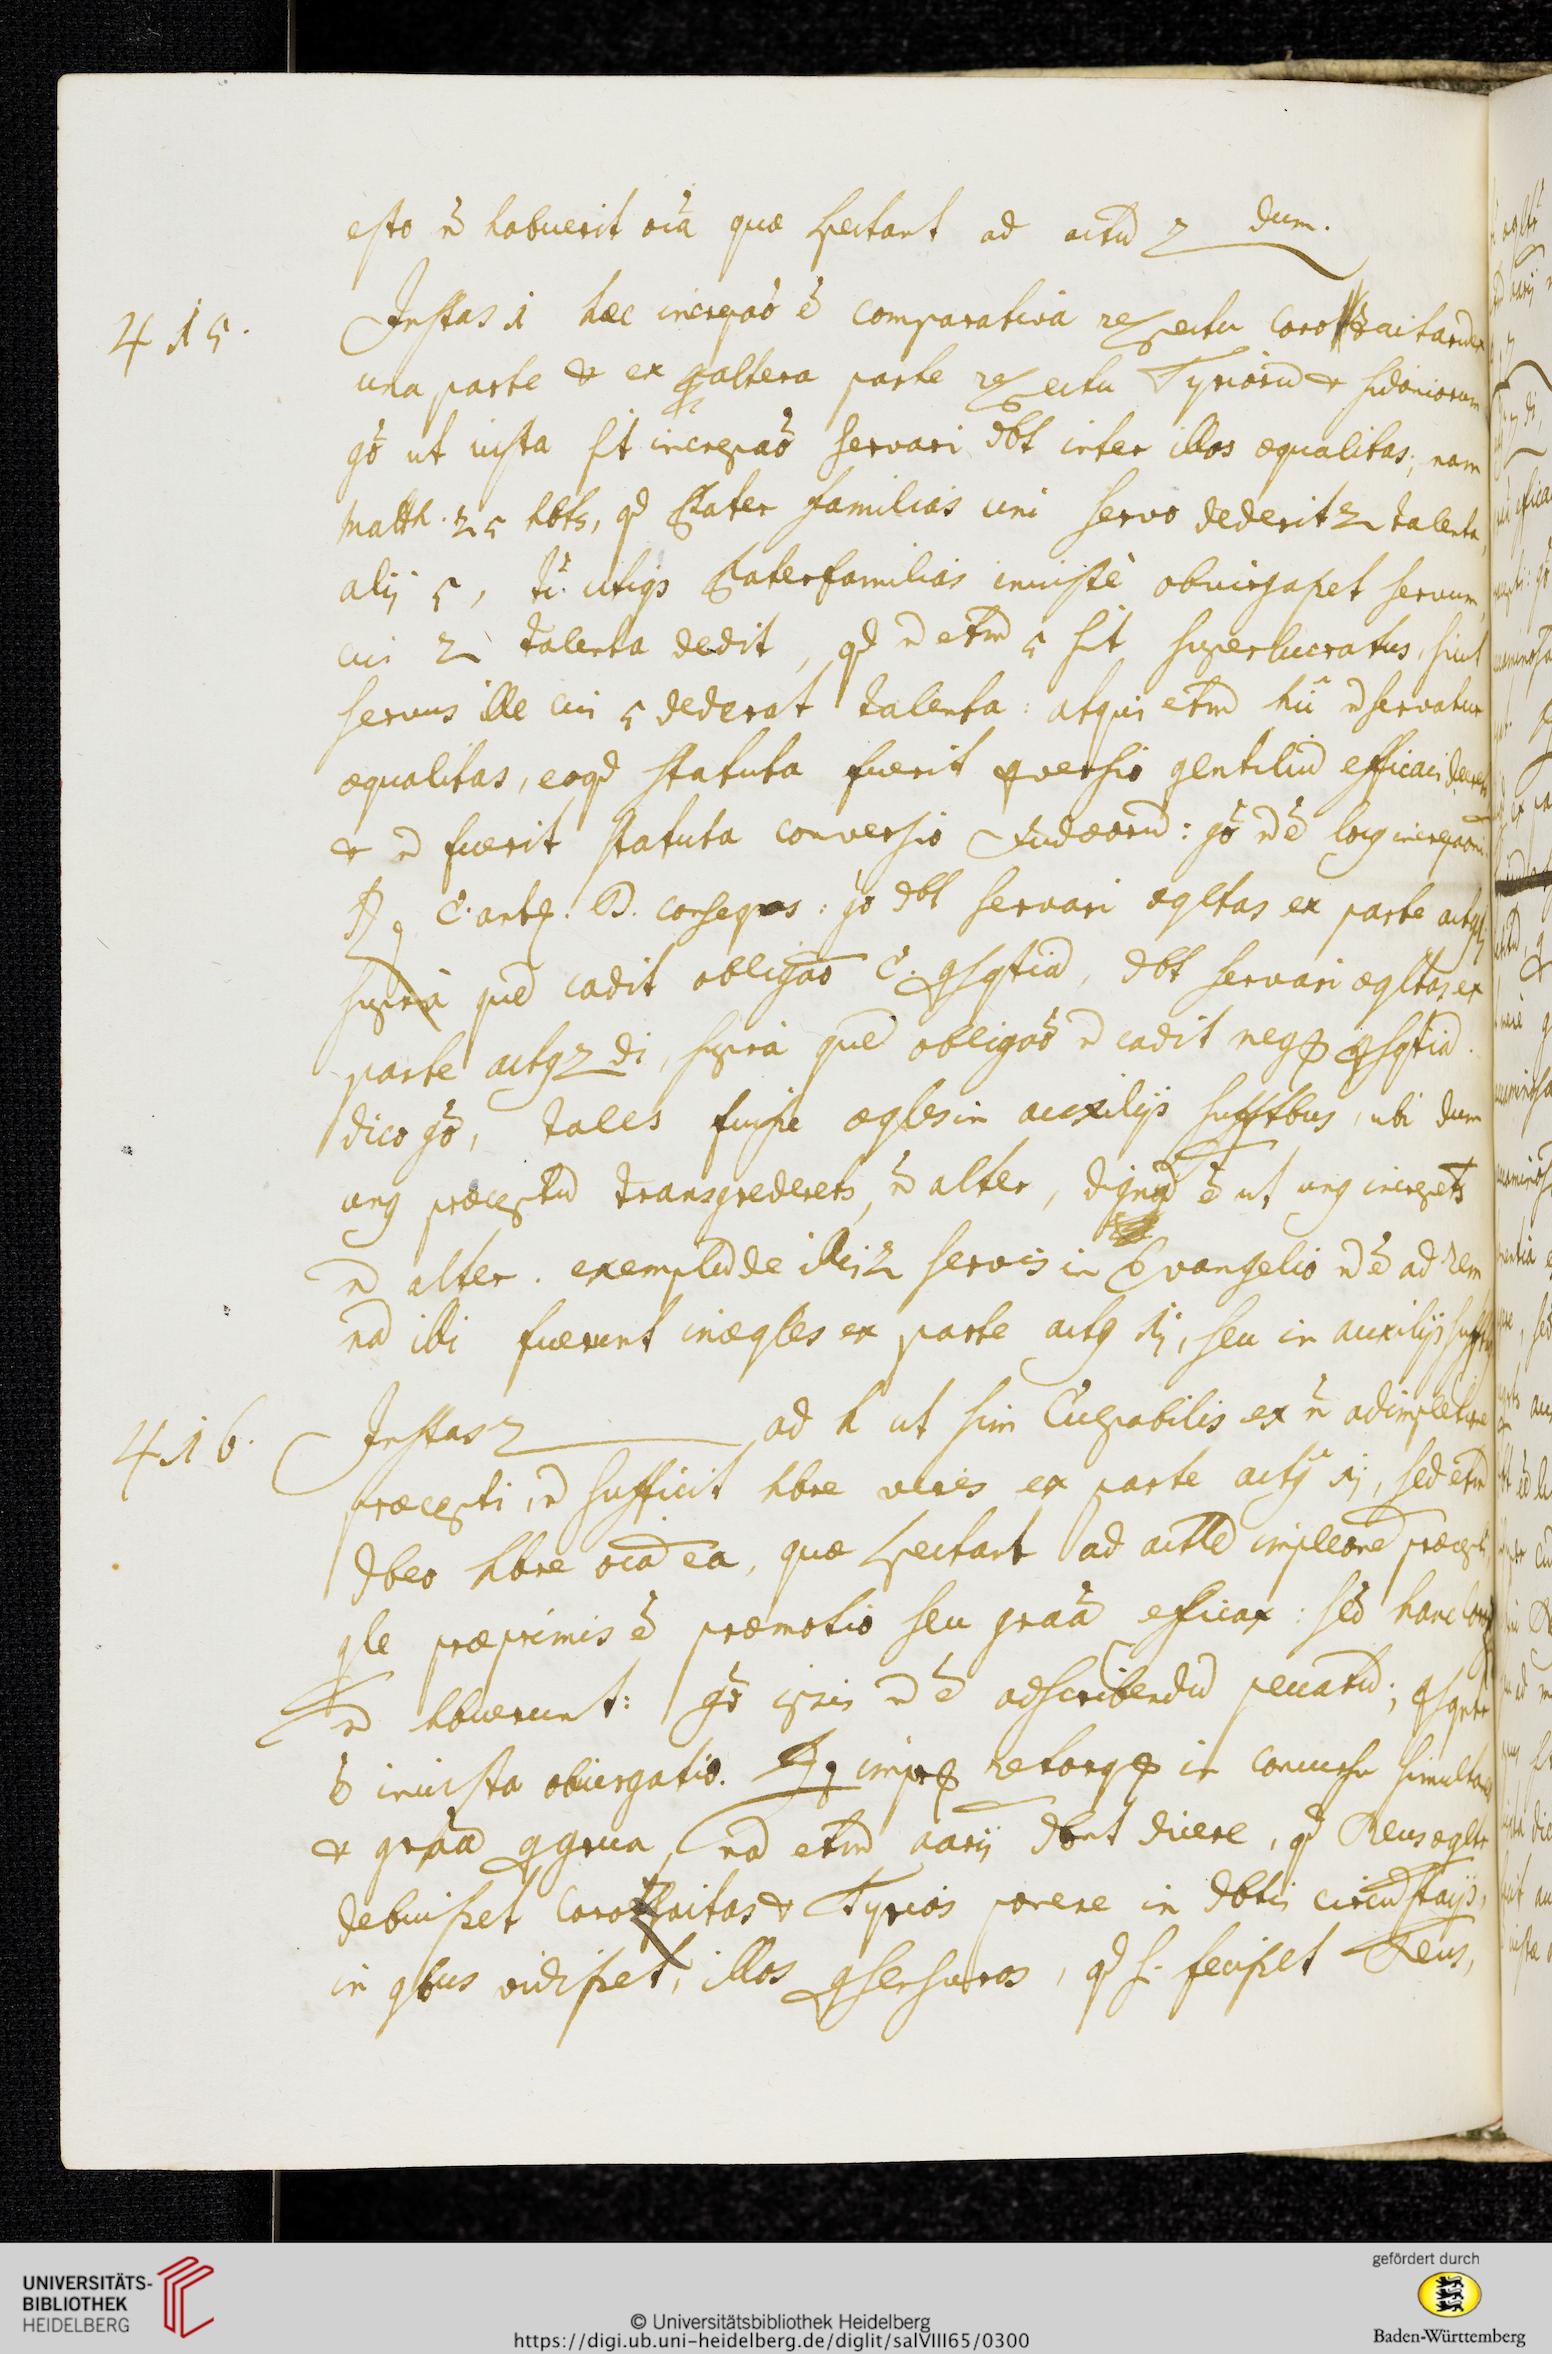 esto ñ habuerit oia quæ spectant ad actũ 2dum.
415. Instas 1 hæc increpao ẽ comparativa respectu Coro aitarum
una parte & ex altera parte respectu Tyriorũ & Sidoniorum
gõ ut iusta sit increpao servari dbt inter illos æqualitas; nam
Matth. 25 hbts, qd Pater familias uni servo dederit 2 talenta,
alij 5, tc. utiqs Paterfamilias iniuste obiurgasset servum,
cui 2 talenta dedit, qd ñ etm 5 sit superlucratus, sicut
servus ille cui 5 dederat talenta: atqui etm hic ñ servatur
æqualitas, eoqd statuta fuerit qversio gentiliũ efficaci decreto
& ñ fuerit statuta conversio Judæorũ: gõ ñ ẽ locq increpaoni.
Rq C. antq. D. conseqns: go dbt servari æqltas ex parte actq 1i
supra quẽ cadit obligao C. qsqtiã, dbt servari æqltas ex
parte actq 2di, supra quẽ obligao ñ cadit negq qsqtiã.
dico gõ, tales fuisse æqles in auxilijs sufftbus, ubi dum
unq præceptũ transgrederets, ñ alter, dignq ẽ ut unq increpets
ñ alter. exemplũ de illis 2 servis in Evangelio ñ ẽ ad rem
nã ibi fuerunt inæqles ex parte actq 1i, seu in auxilijs
416. Instas 2 ad h ut sim Culpabilis ex ñ adimpletione
præcepti, ñ sufficit hbre vires ex parte actq 1i, sed etm
dbeo hbre oia ea, quæ spectant ad actlẽ impleonẽ præcepti,
qle præprimis ẽ præmotio seu graa efficax: sed hanc
ñ hbuerunt: gõ ipsis ñ ẽ adscribendũ peccatũ; qsqntr
ẽ iniusta obiurgatio. Rq imprq retorqq in concursu simultaneo
& graã qgrua, nã etm aarij dbnt dicere, qd Deus æqltr
debuisset Coro aitas & Tyrios ponere in dbtis circũstaijs,
in qbus vidisset, illos qsensuros, qd si fecisset Deus,
UNIVERSITÄTS-
BIBLIOTHEK
HEIDELBERG
© Universitätsbibliothek Heidelberg
https://digi.ub.uni-heidelberg.de/diglit/salVIII65/0300
gefördert durch
Baden-Württemberg